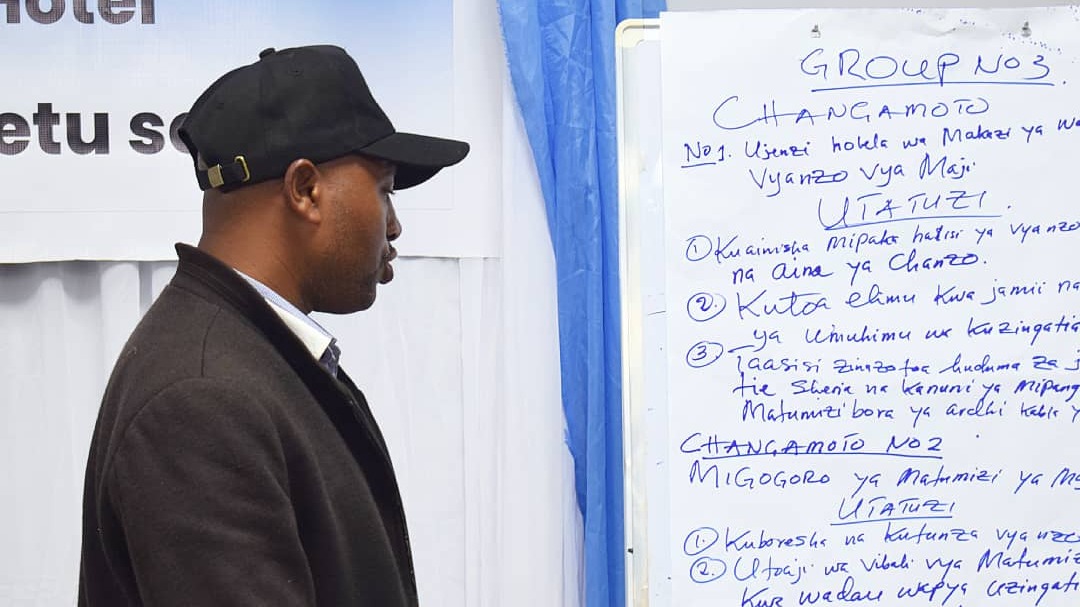 Hotel
etu se
GROUP NO 3
CHANGAMOTO
No 1. Ujenzi holela wa Makazi ya wa
Vyanzo vya Maji
UTATUZI.
① Kuainisha mipaka halisi ya vyanzo
na aina ya Chanzo.
②. Kutoa elimu kwa jamii na
ya Umuhimu wa kuzingatia
③ Taasisi zinazotoa huduma za j
tie Sheria na kanuni ya Mipang
Matumizi bora ya ardhi kabla y
CHANGAMOTO NO 2
MIGOGORO ya Matumizi ya Ma
UTATUZI
①. Kuboresha na Kutunza vyanzo
②. Utoaji wa vibali vya Matumiz
Kwa wadau wapya uzingati